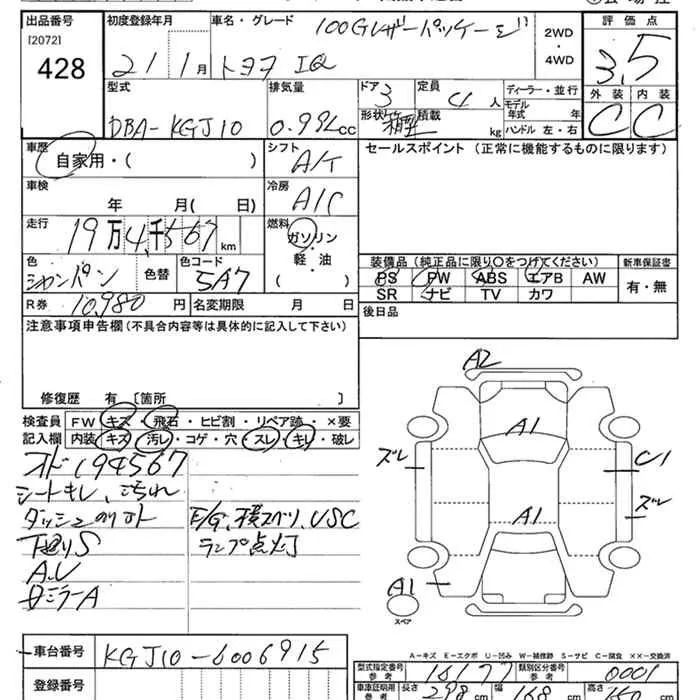 出品番号 初度登録年月 車名・グレード 100Gレザーパッケージ 2WD ・ 4WD 評価点
[2072] 428 21 1月 トヨタ IQ 3.5
型式 排気量 ドア 3 定員 4人 ディーラー・並行 外装 内装
DBA-KGJ10 0.99L cc 形状 箱型 積載 kg モデル年式 年 ハンドル 左・右 C C
車歴 自家用・( ) シフト A/T セールスポイント(正常に機能するものに限ります)
車検 年 月( 日) 冷房 A/C
走行 19万4千567km 燃料 ガソリン・軽油 ( )
装備品(純正品に限り○をつけてください) 新車保証書
色 シャンパン 色替 色コード 5A7 PS PW ABS エアB AW 有・無
SR ナビ TV カワ
R券 10,980円 名変期限 月 日 後日品
注意事項申告欄(不具合内容等は具体的に記入して下さい)
修復歴 有 [箇所 ]
検査員 FW キズ・飛石・ヒビ割・リペア跡・×要
記入欄 内装 キズ・汚レ・コゲ・穴・スレ・キレ・破レ
オド194567
シートキレ、こげれ
ダッシュ
下廻りS E/G、
ランプ点灯
A.V
ミラーA
A2
A1
ズレ
C1
ズレ
A1
A1
スペア
A-キズ E-エクボ U-凹み W-補修跡 S-サビ C-腐食 ××-交換済
車台番号 KGJ10-6006915
型式指定番号 参考 16177 類別区分番号 参考 0001
登録番号 車庫証明用 参考 長さ 298cm 幅 168cm 高さ 150cm